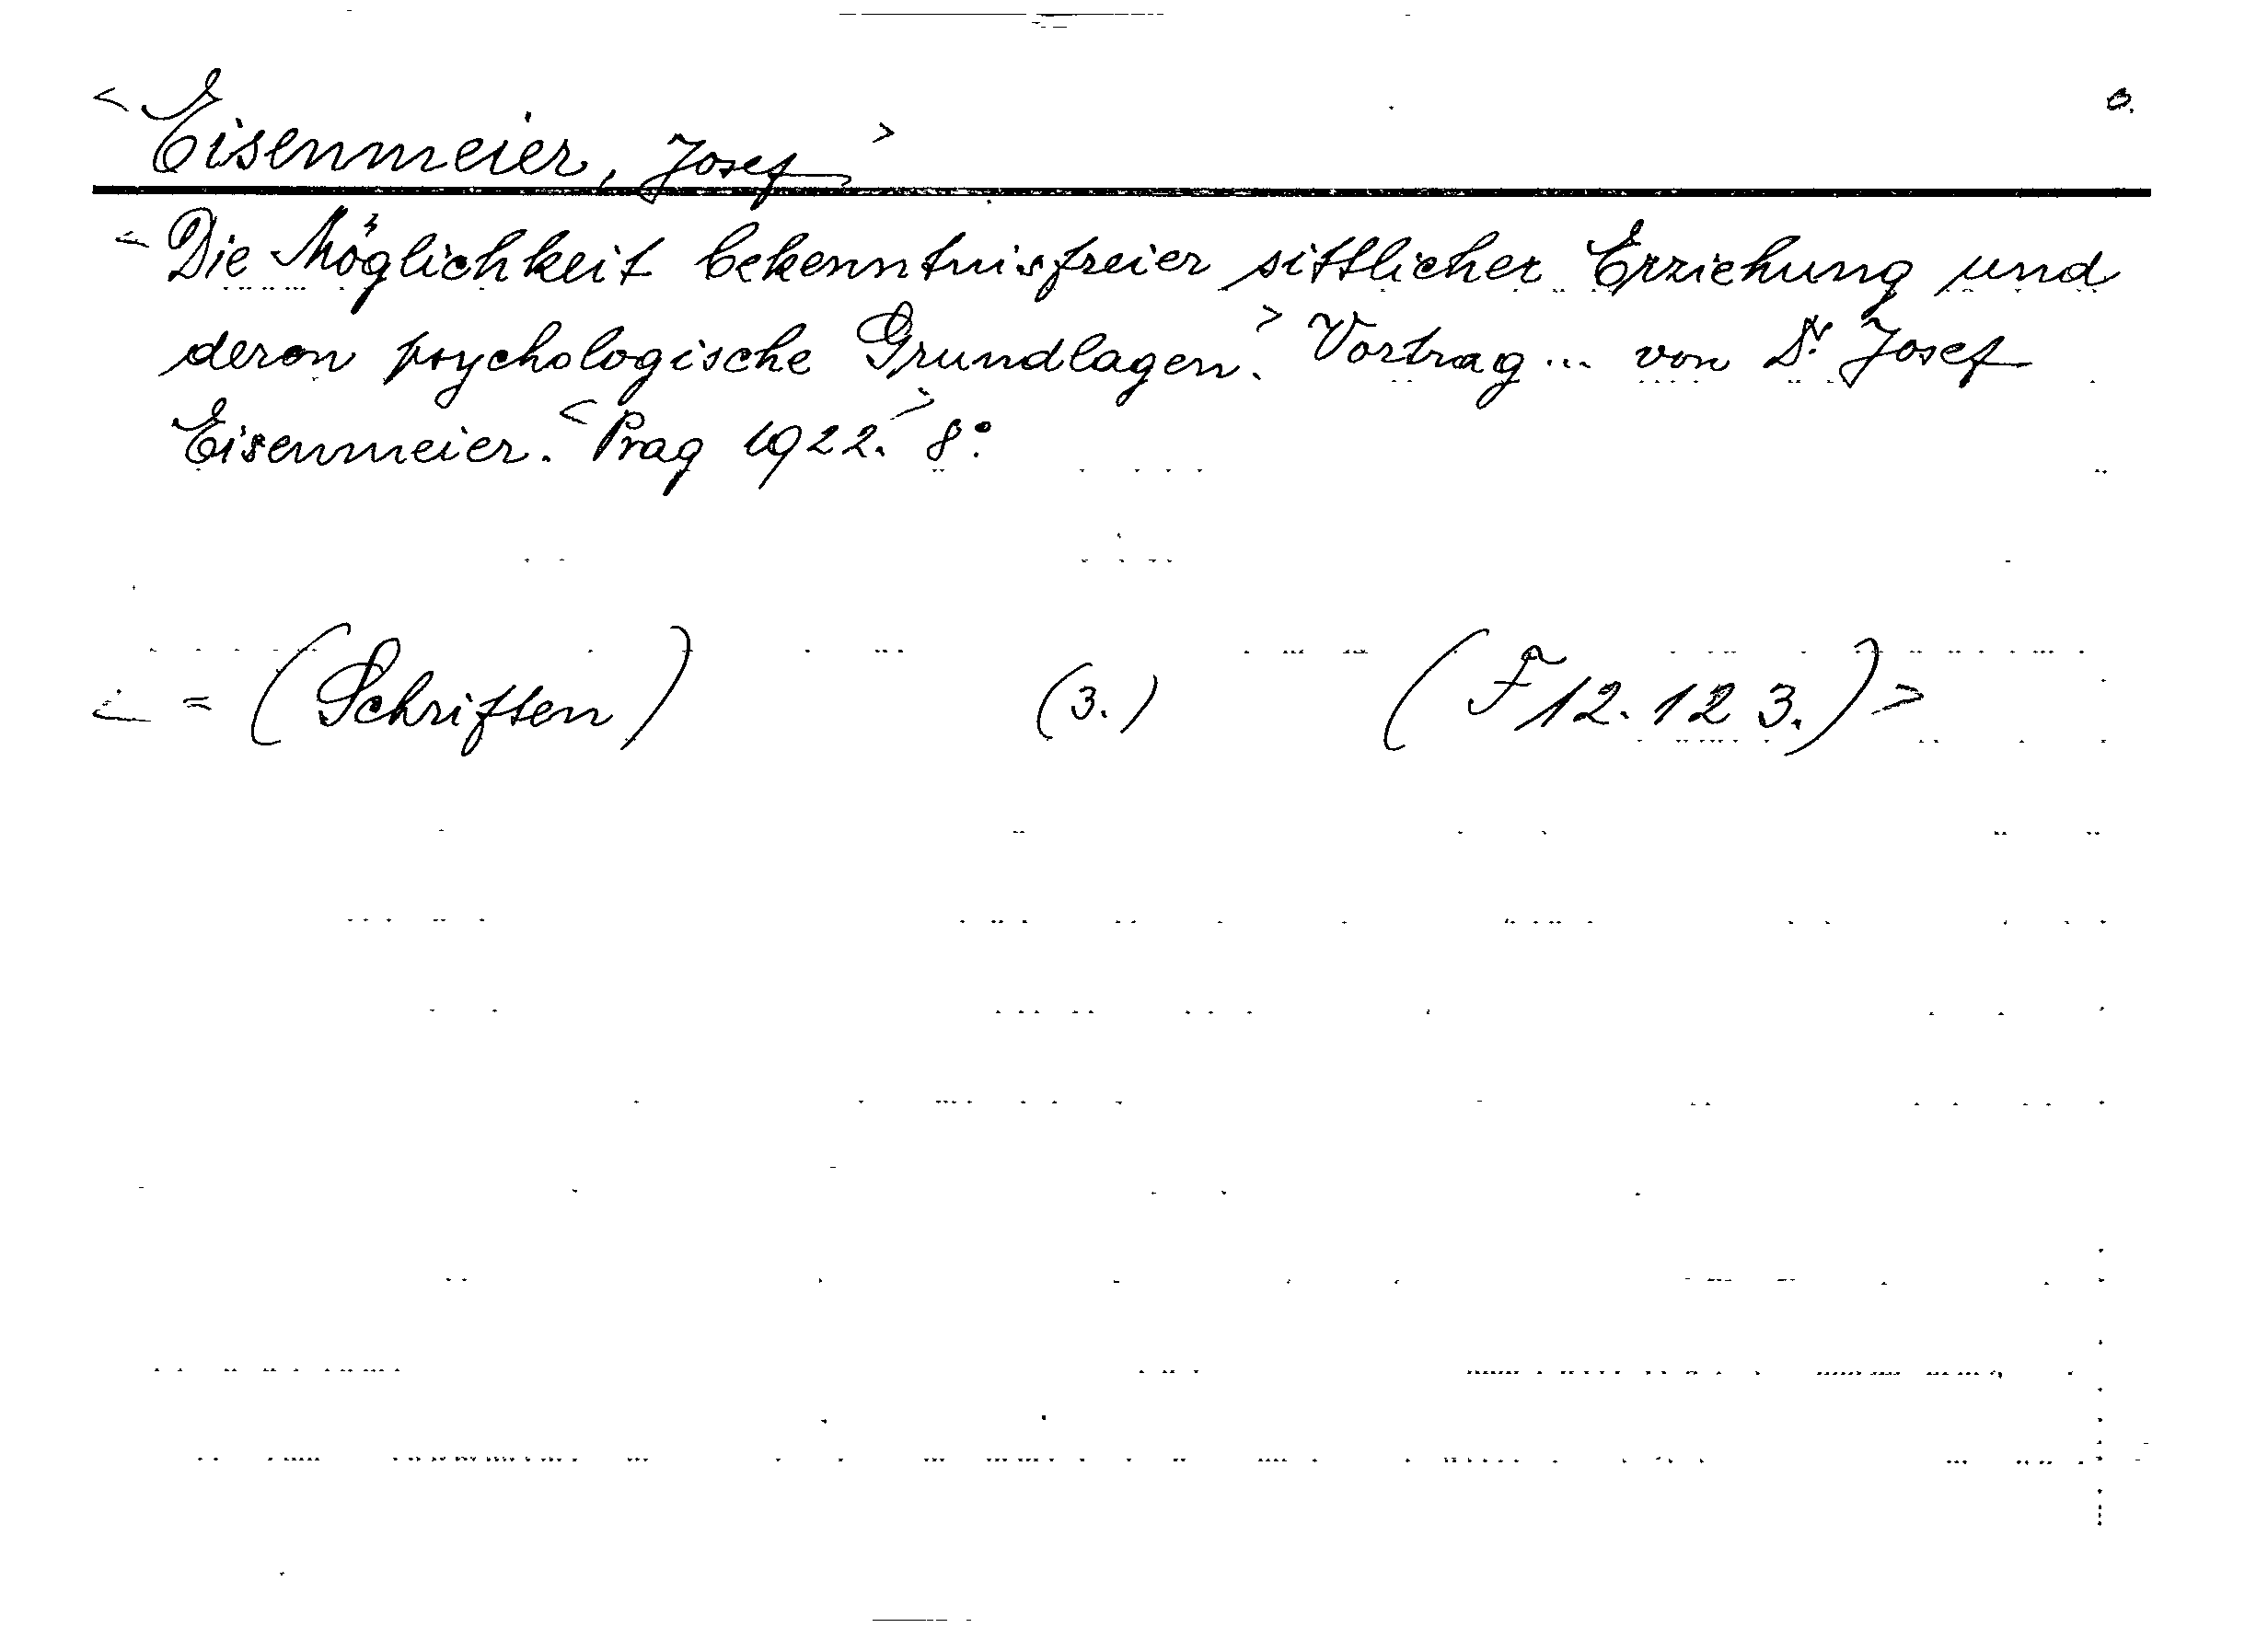 < Eisenmeier, Josef >
< Die Möglichkeit bekenntnisfreier sittlicher Erziehung und
deren psychologische Grundlagen. > Vortrag ... von Dr. Josef
Eisenmeier. < Prag 1922. > 8°.
< = (Schriften) (3.) (F 12. 12 3.) >